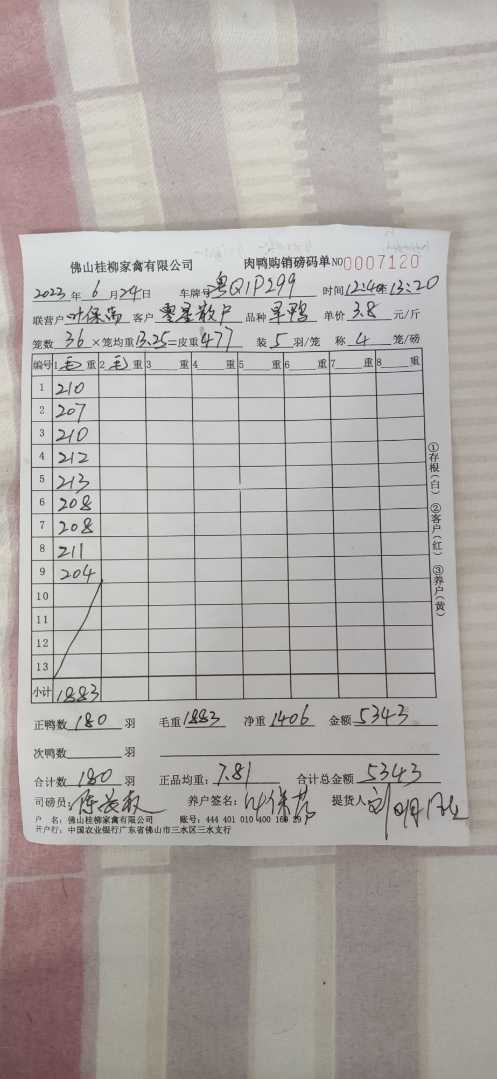 佛山桂柳家禽有限公司 肉鸭购销磅码单 NO 0007120
2023年 6月 24日 车牌号 粤Q1P299 时间 12:40 13:20
联营户 叶保 客户 零星散户 品种 旱鸭 单价 3.8 元/斤
笼数 36 ×笼均重 13.25 =皮重 477 装 5 羽/笼 称 4 笼/磅
编号 1 毛 重 2 毛 重 3 重 4 重 5 重 6 重 7 重 8 重
1 210
2 207
3 210
4 212
5 213
6 208
7 208
8 211
9 204
10
11
12
13
小计 1883
①存根(白) ②客户(红) ③养户(黄)
正鸭数 180 羽 毛重 1883 净重 1406 金额 5343
次鸭数 羽
合计数 180 羽 正品均重: 7.81 合计总金额 5343
司磅员: 陈 养户签名: 叶保 提货人 刘明
户 名: 佛山桂柳家禽有限公司 账号: 444 401 010 400 169 29
开户行: 中国农业银行广东省佛山市三水区三水支行